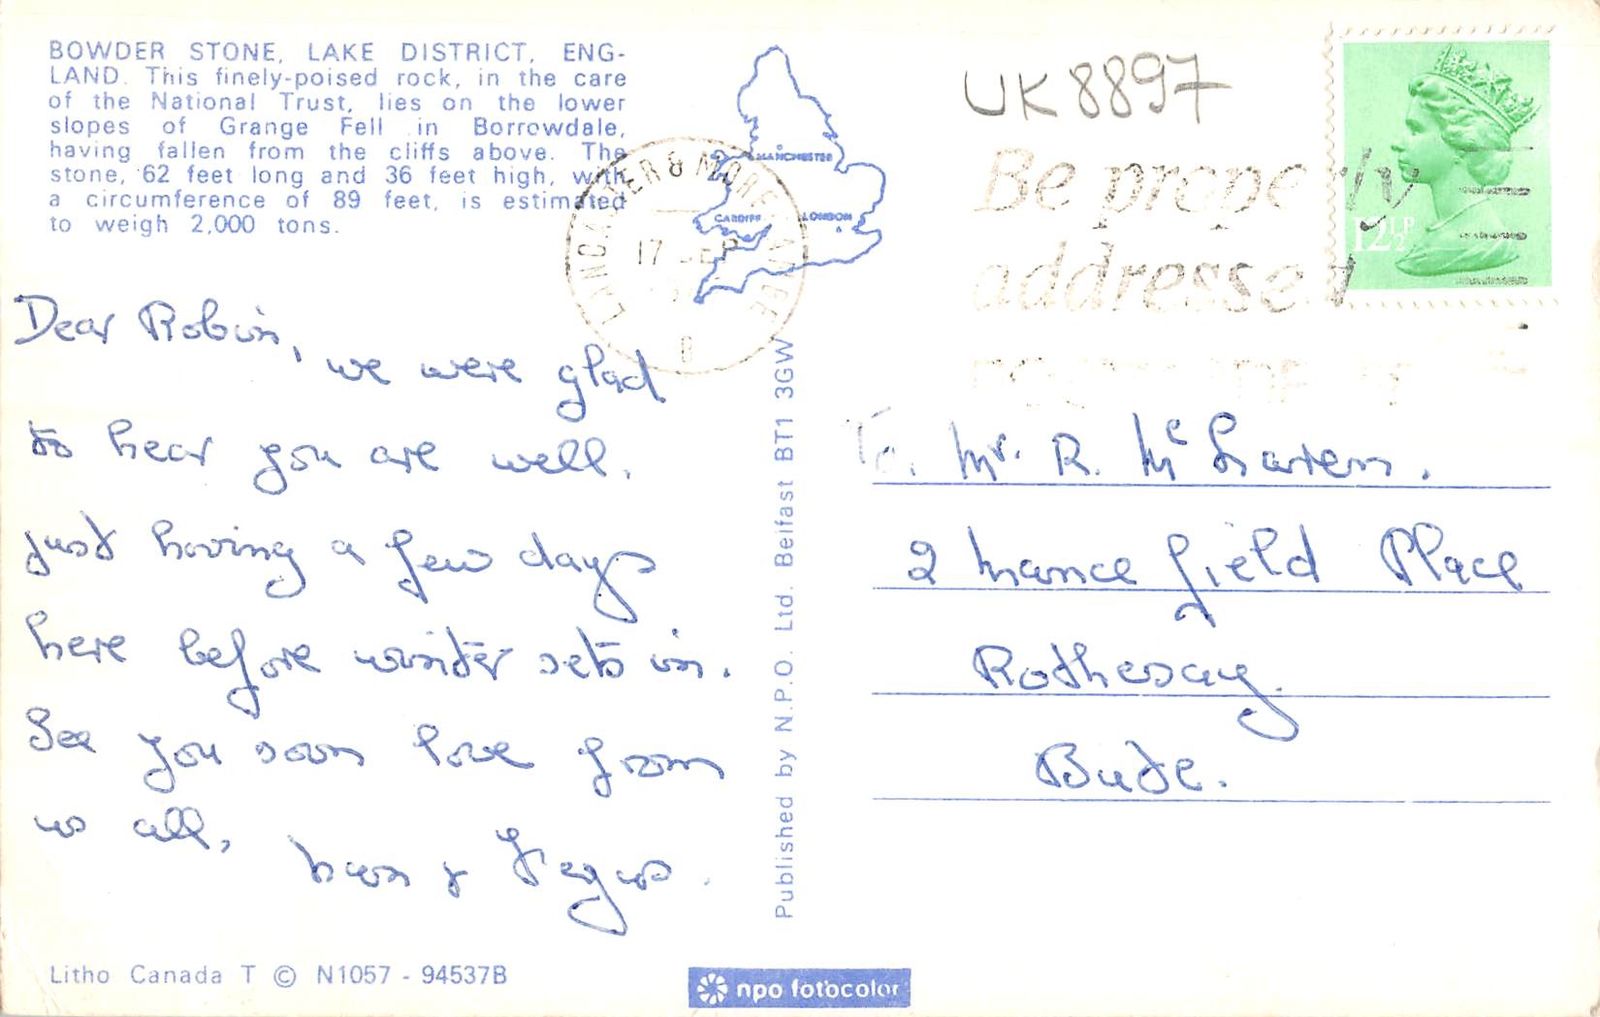 BOWDER STONE, LAKE DISTRICT, ENG-
LAND. This finely-poised rock, in the care
of the National Trust, lies on the lower
slopes of Grange Fell in Borrowdale,
having fallen from the cliffs above. The
stone, 62 feet long and 36 feet high, with
a circumference of 89 feet, is estimated
to weigh 2,000 tons.
MANCHESTER
CARDIFF
LONDON
LANCASTER & MORECAMBE
17 SEP
B
UK 8897
Be properly
addressed
12½P
Dear Robin,
we were glad
to hear you are well.
just having a few days
here before winter sets in.
See you soon love from
us all,
& Fergus.
Published by N.P.O. Ltd. Belfast BT1 3GW
To. Mr. R. McLaren.
2 Mancefield Place
Rothesay
Bute.
Litho Canada T © N1057 - 94537B
npo fotocolor